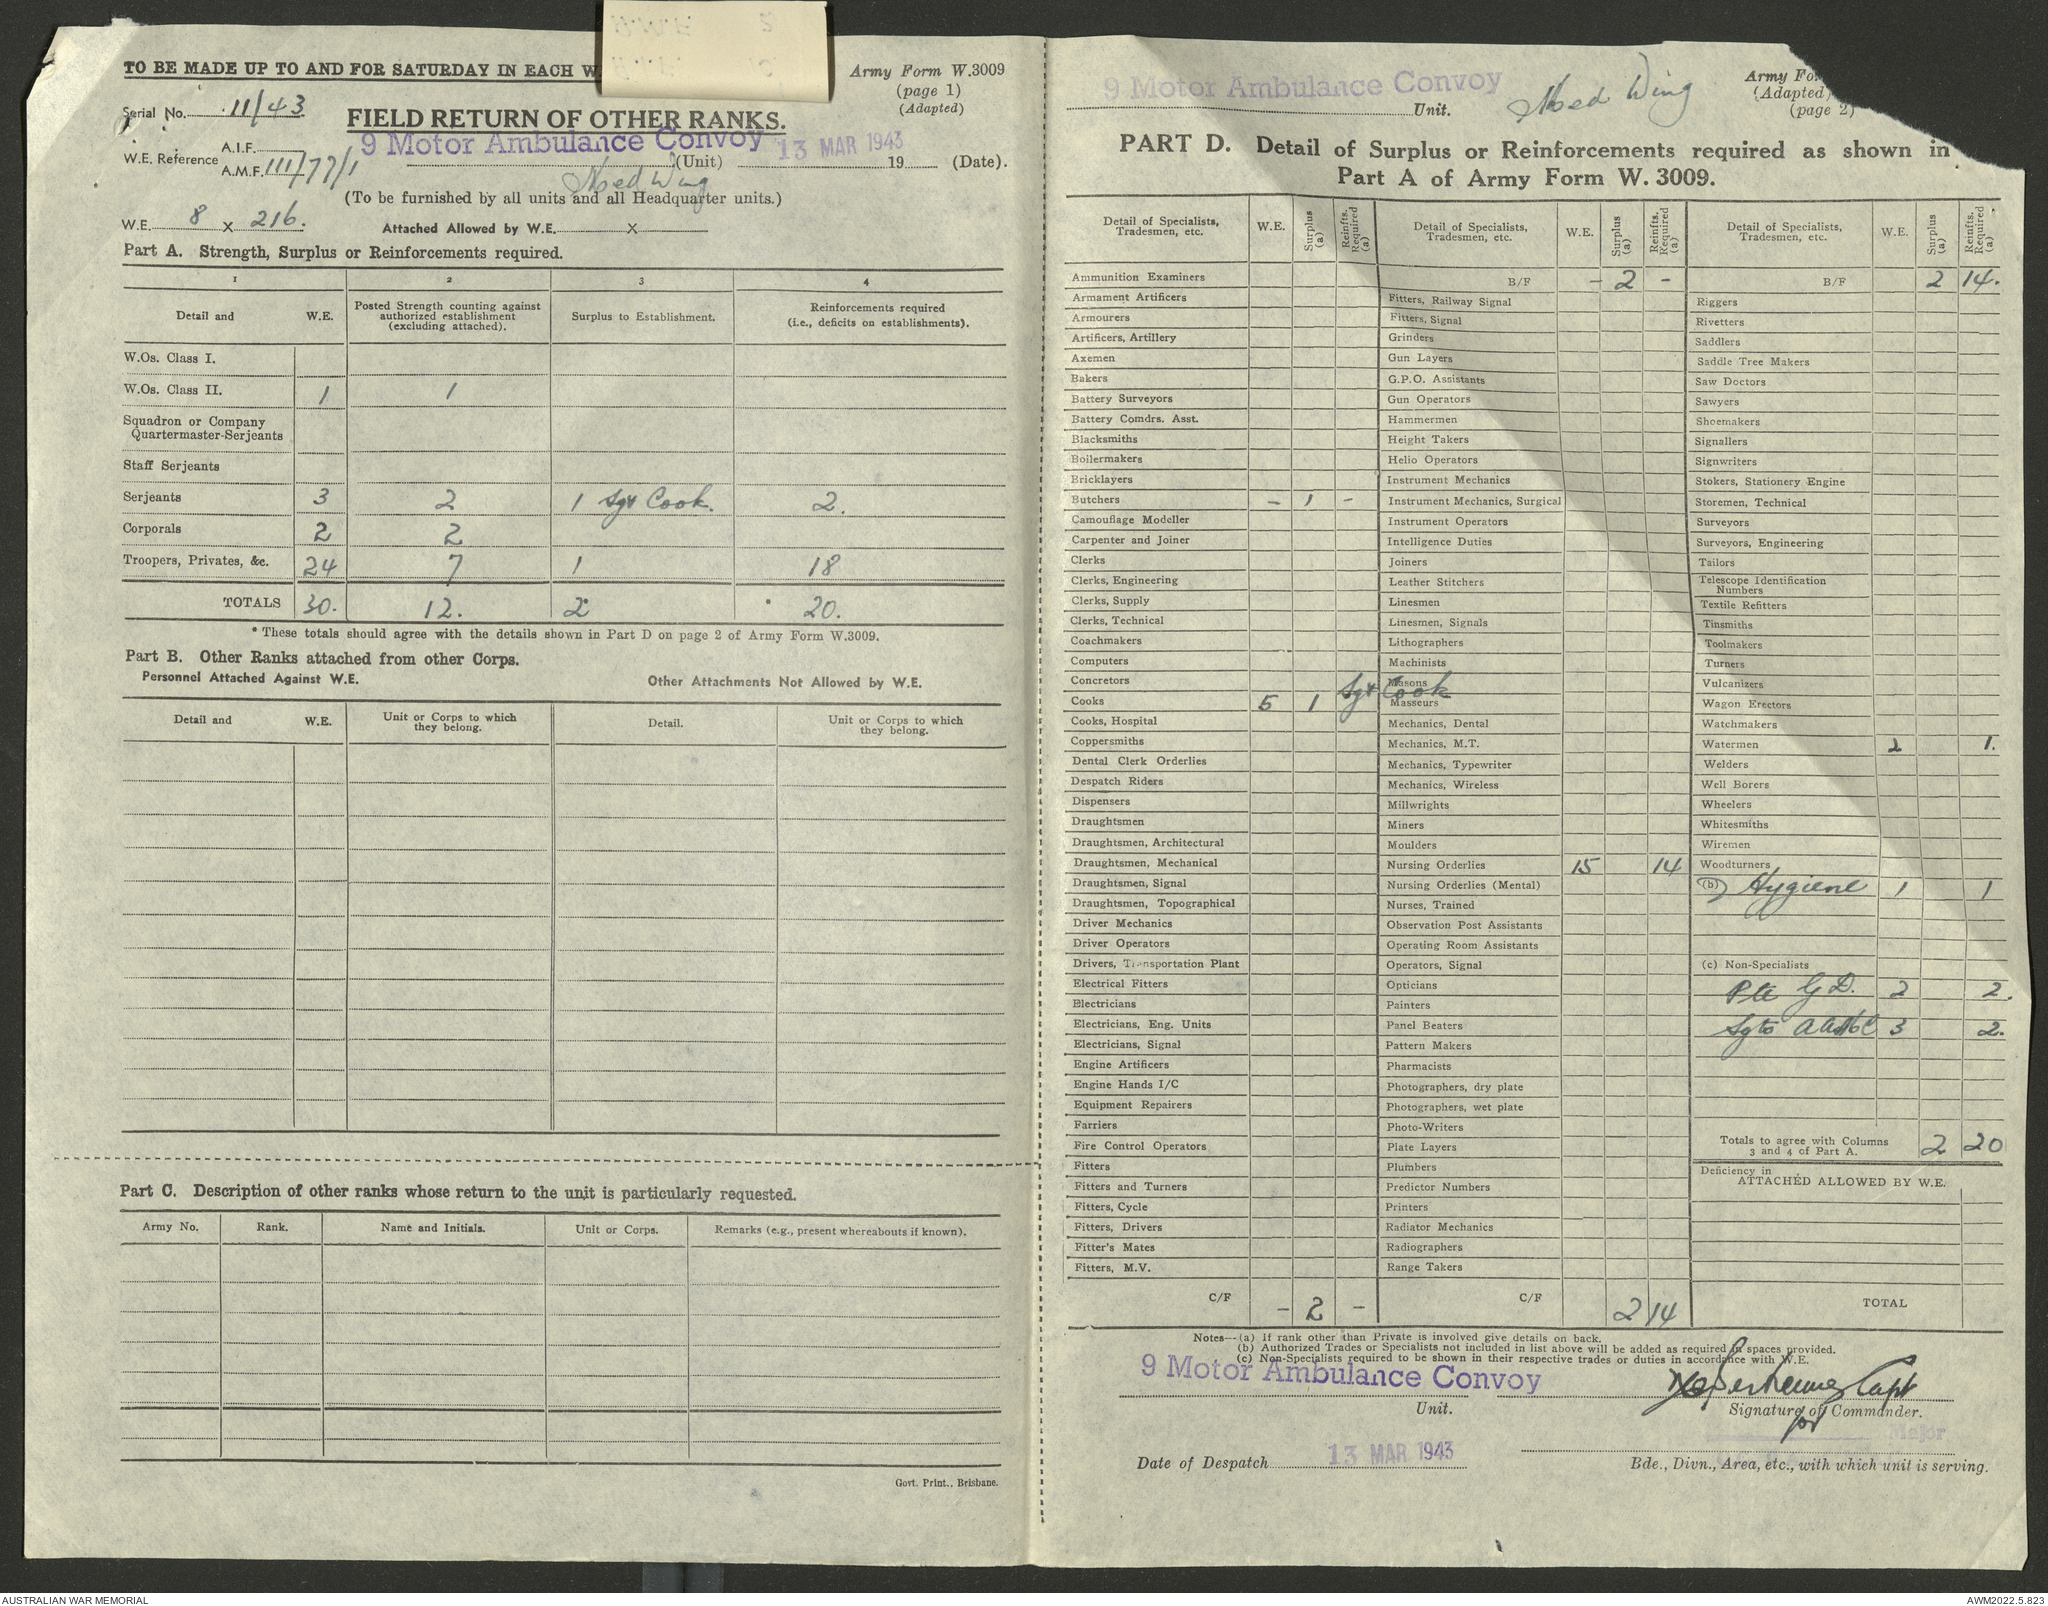 TO BE MADE UP TO AND FOR SATURDAY IN EACH W
Army Form W.3009
(page 1)
(Adapted)
Serial No. 11/43
FIELD RETURN OF OTHER RANKS.
9 Motor Ambulance Convoy (Unit) 13 MAR 1943 19 (Date).
Med Wing
W.E. Reference A.I.F.
A.M.F. 111/77/1
(To be furnished by all units and all Headquarter units.)
W.E. 8 x 216. Attached Allowed by W.E. x
Part A. Strength, Surplus or Reinforcements required.
1 2 3 4
Detail and W.E. Posted Strength counting against authorized establishment (excluding attached). Surplus to Establishment. Reinforcements required (i.e., deficits on establishments).
W.Os. Class I.
W.Os. Class II. 1 1
Squadron or Company
Quartermaster-Serjeants
Staff Serjeants
Serjeants 3 2 1 Sgt Cook. 2.
Corporals 2 2
Troopers, Privates, &c. 24 7 1 18
TOTALS 30. 12. 2 * 20.
* These totals should agree with the details shown in Part D on page 2 of Army Form W.3009.
Part B. Other Ranks attached from other Corps.
Personnel Attached Against W.E. Other Attachments Not Allowed by W.E.
Detail and W.E. Unit or Corps to which they belong. Detail. Unit or Corps to which they belong.
Part C. Description of other ranks whose return to the unit is particularly requested.
Army No. Rank. Name and Initials. Unit or Corps. Remarks (e.g., present whereabouts if known).
Govt. Print., Brisbane.
9 Motor Ambulance Convoy Unit. Med Wing
Army Fo
(Adapted)
(page 2)
PART D. Detail of Surplus or Reinforcements required as shown in
Part A of Army Form W. 3009.
Detail of Specialists, Tradesmen, etc. W.E. Surplus (a) Reinfts. Required (a)
Ammunition Examiners
Armament Artificers
Armourers
Artificers, Artillery
Axemen
Bakers
Battery Surveyors
Battery Comdrs. Asst.
Blacksmiths
Boilermakers
Bricklayers
Butchers - 1 -
Camouflage Modeller
Carpenter and Joiner
Clerks
Clerks, Engineering
Clerks, Supply
Clerks, Technical
Coachmakers
Computers
Concretors
Cooks 5 1 Sgt Cook
Cooks, Hospital
Coppersmiths
Dental Clerk Orderlies
Despatch Riders
Dispensers
Draughtsmen
Draughtsmen, Architectural
Draughtsmen, Mechanical
Draughtsmen, Signal
Draughtsmen, Topographical
Driver Mechanics
Driver Operators
Drivers, Transportation Plant
Electrical Fitters
Electricians
Electricians, Eng. Units
Electricians, Signal
Engine Artificers
Engine Hands I/C
Equipment Repairers
Farriers
Fire Control Operators
Fitters
Fitters and Turners
Fitters, Cycle
Fitters, Drivers
Fitter's Mates
Fitters, M.V.
C/F - 2 -
Detail of Specialists, Tradesmen, etc. W.E. Surplus (a) Reinfts. Required (a)
B/F - 2 -
Fitters, Railway Signal
Fitters, Signal
Grinders
Gun Layers
G.P.O. Assistants
Gun Operators
Hammermen
Height Takers
Helio Operators
Instrument Mechanics
Instrument Mechanics, Surgical
Instrument Operators
Intelligence Duties
Joiners
Leather Stitchers
Linesmen
Linesmen, Signals
Lithographers
Machinists
Masons
Masseurs
Mechanics, Dental
Mechanics, M.T.
Mechanics, Typewriter
Mechanics, Wireless
Millwrights
Miners
Moulders
Nursing Orderlies 15 14
Nursing Orderlies (Mental)
Nurses, Trained
Observation Post Assistants
Operating Room Assistants
Operators, Signal
Opticians
Painters
Panel Beaters
Pattern Makers
Pharmacists
Photographers, dry plate
Photographers, wet plate
Photo-Writers
Plate Layers
Plumbers
Predictor Numbers
Printers
Radiator Mechanics
Radiographers
Range Takers
C/F 2 14
Detail of Specialists, Tradesmen, etc. W.E. Surplus (a) Reinfts. Required (a)
B/F 2 14.
Riggers
Rivetters
Saddlers
Saddle Tree Makers
Saw Doctors
Sawyers
Shoemakers
Signallers
Signwriters
Stokers, Stationery Engine
Storemen, Technical
Surveyors
Surveyors, Engineering
Tailors
Telescope Identification Numbers
Textile Refitters
Tinsmiths
Toolmakers
Turners
Vulcanizers
Wagon Erectors
Watchmakers
Watermen 2 1.
Welders
Well Borers
Wheelers
Whitesmiths
Wiremen
Woodturners
(b) Hygiene 1 1
(c) Non-Specialists
Pte G.D. 2 2.
Sgts AAMC 3 2.
Totals to agree with Columns 3 and 4 of Part A. 2 20
Deficiency in
ATTACHED ALLOWED BY W.E.
TOTAL
Notes—(a) If rank other than Private is involved give details on back.
(b) Authorized Trades or Specialists not included in list above will be added as required in spaces provided.
(c) Non-Specialists required to be shown in their respective trades or duties in accordance with W.E.
9 Motor Ambulance Convoy
Unit.
Capt
Signature of Commander.
for
Major
Date of Despatch 13 MAR 1943
Bde., Divn., Area, etc., with which unit is serving.
AUSTRALIAN WAR MEMORIAL
AWM2022.5.823